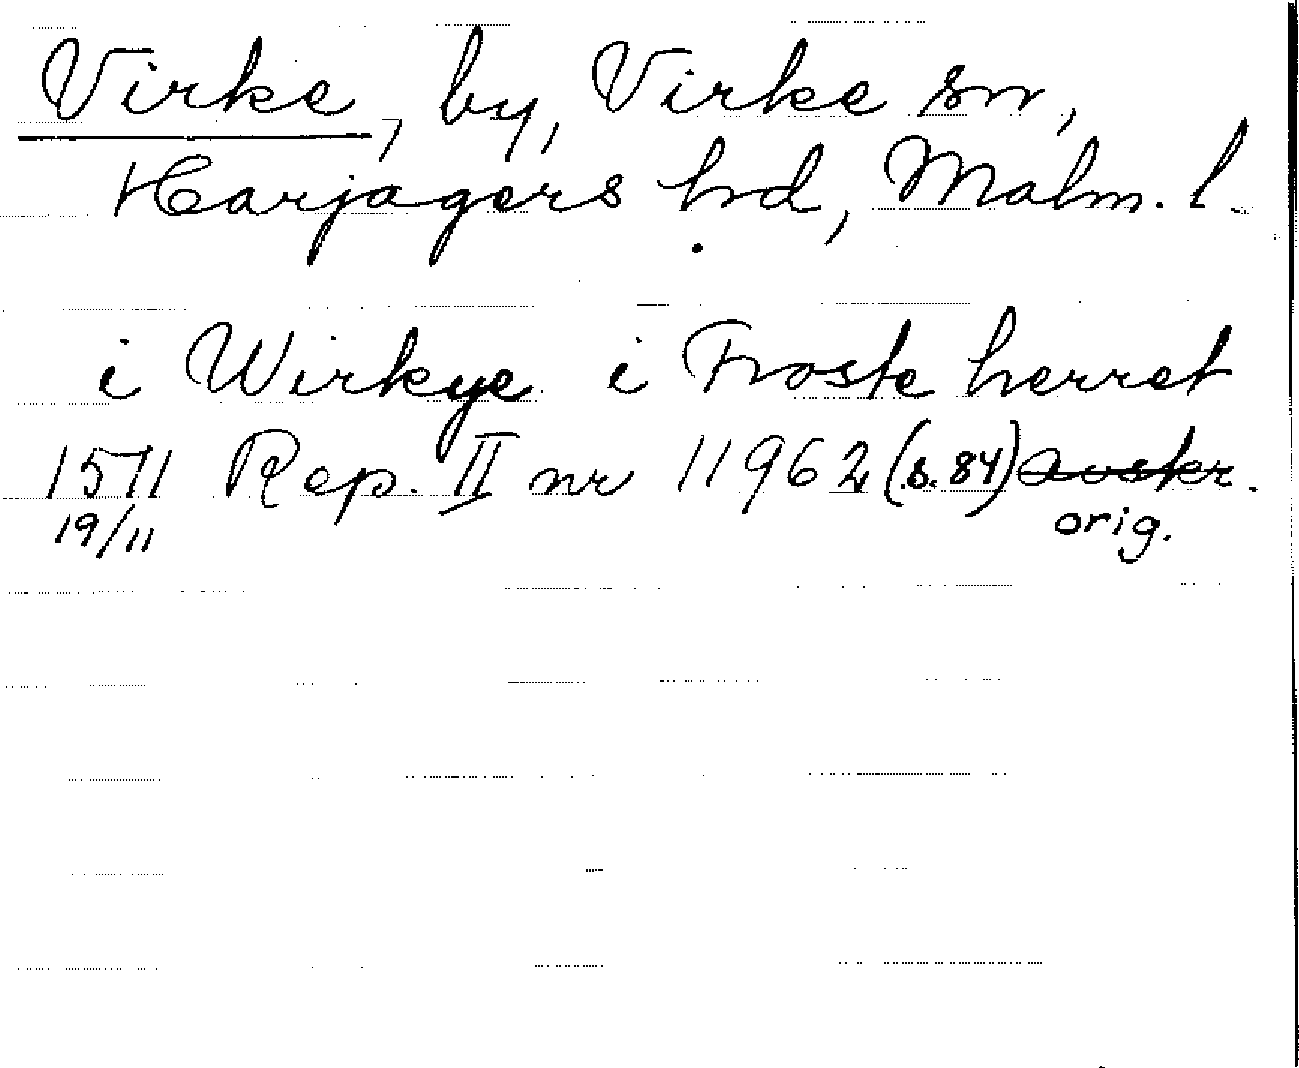 Virke, by, Virke sn,
Harjagers hd, Malm. l.
i Wirkye i Froste herret
1571 Rep. II nr 11962 (s. 84) avskr.
19/11 orig.